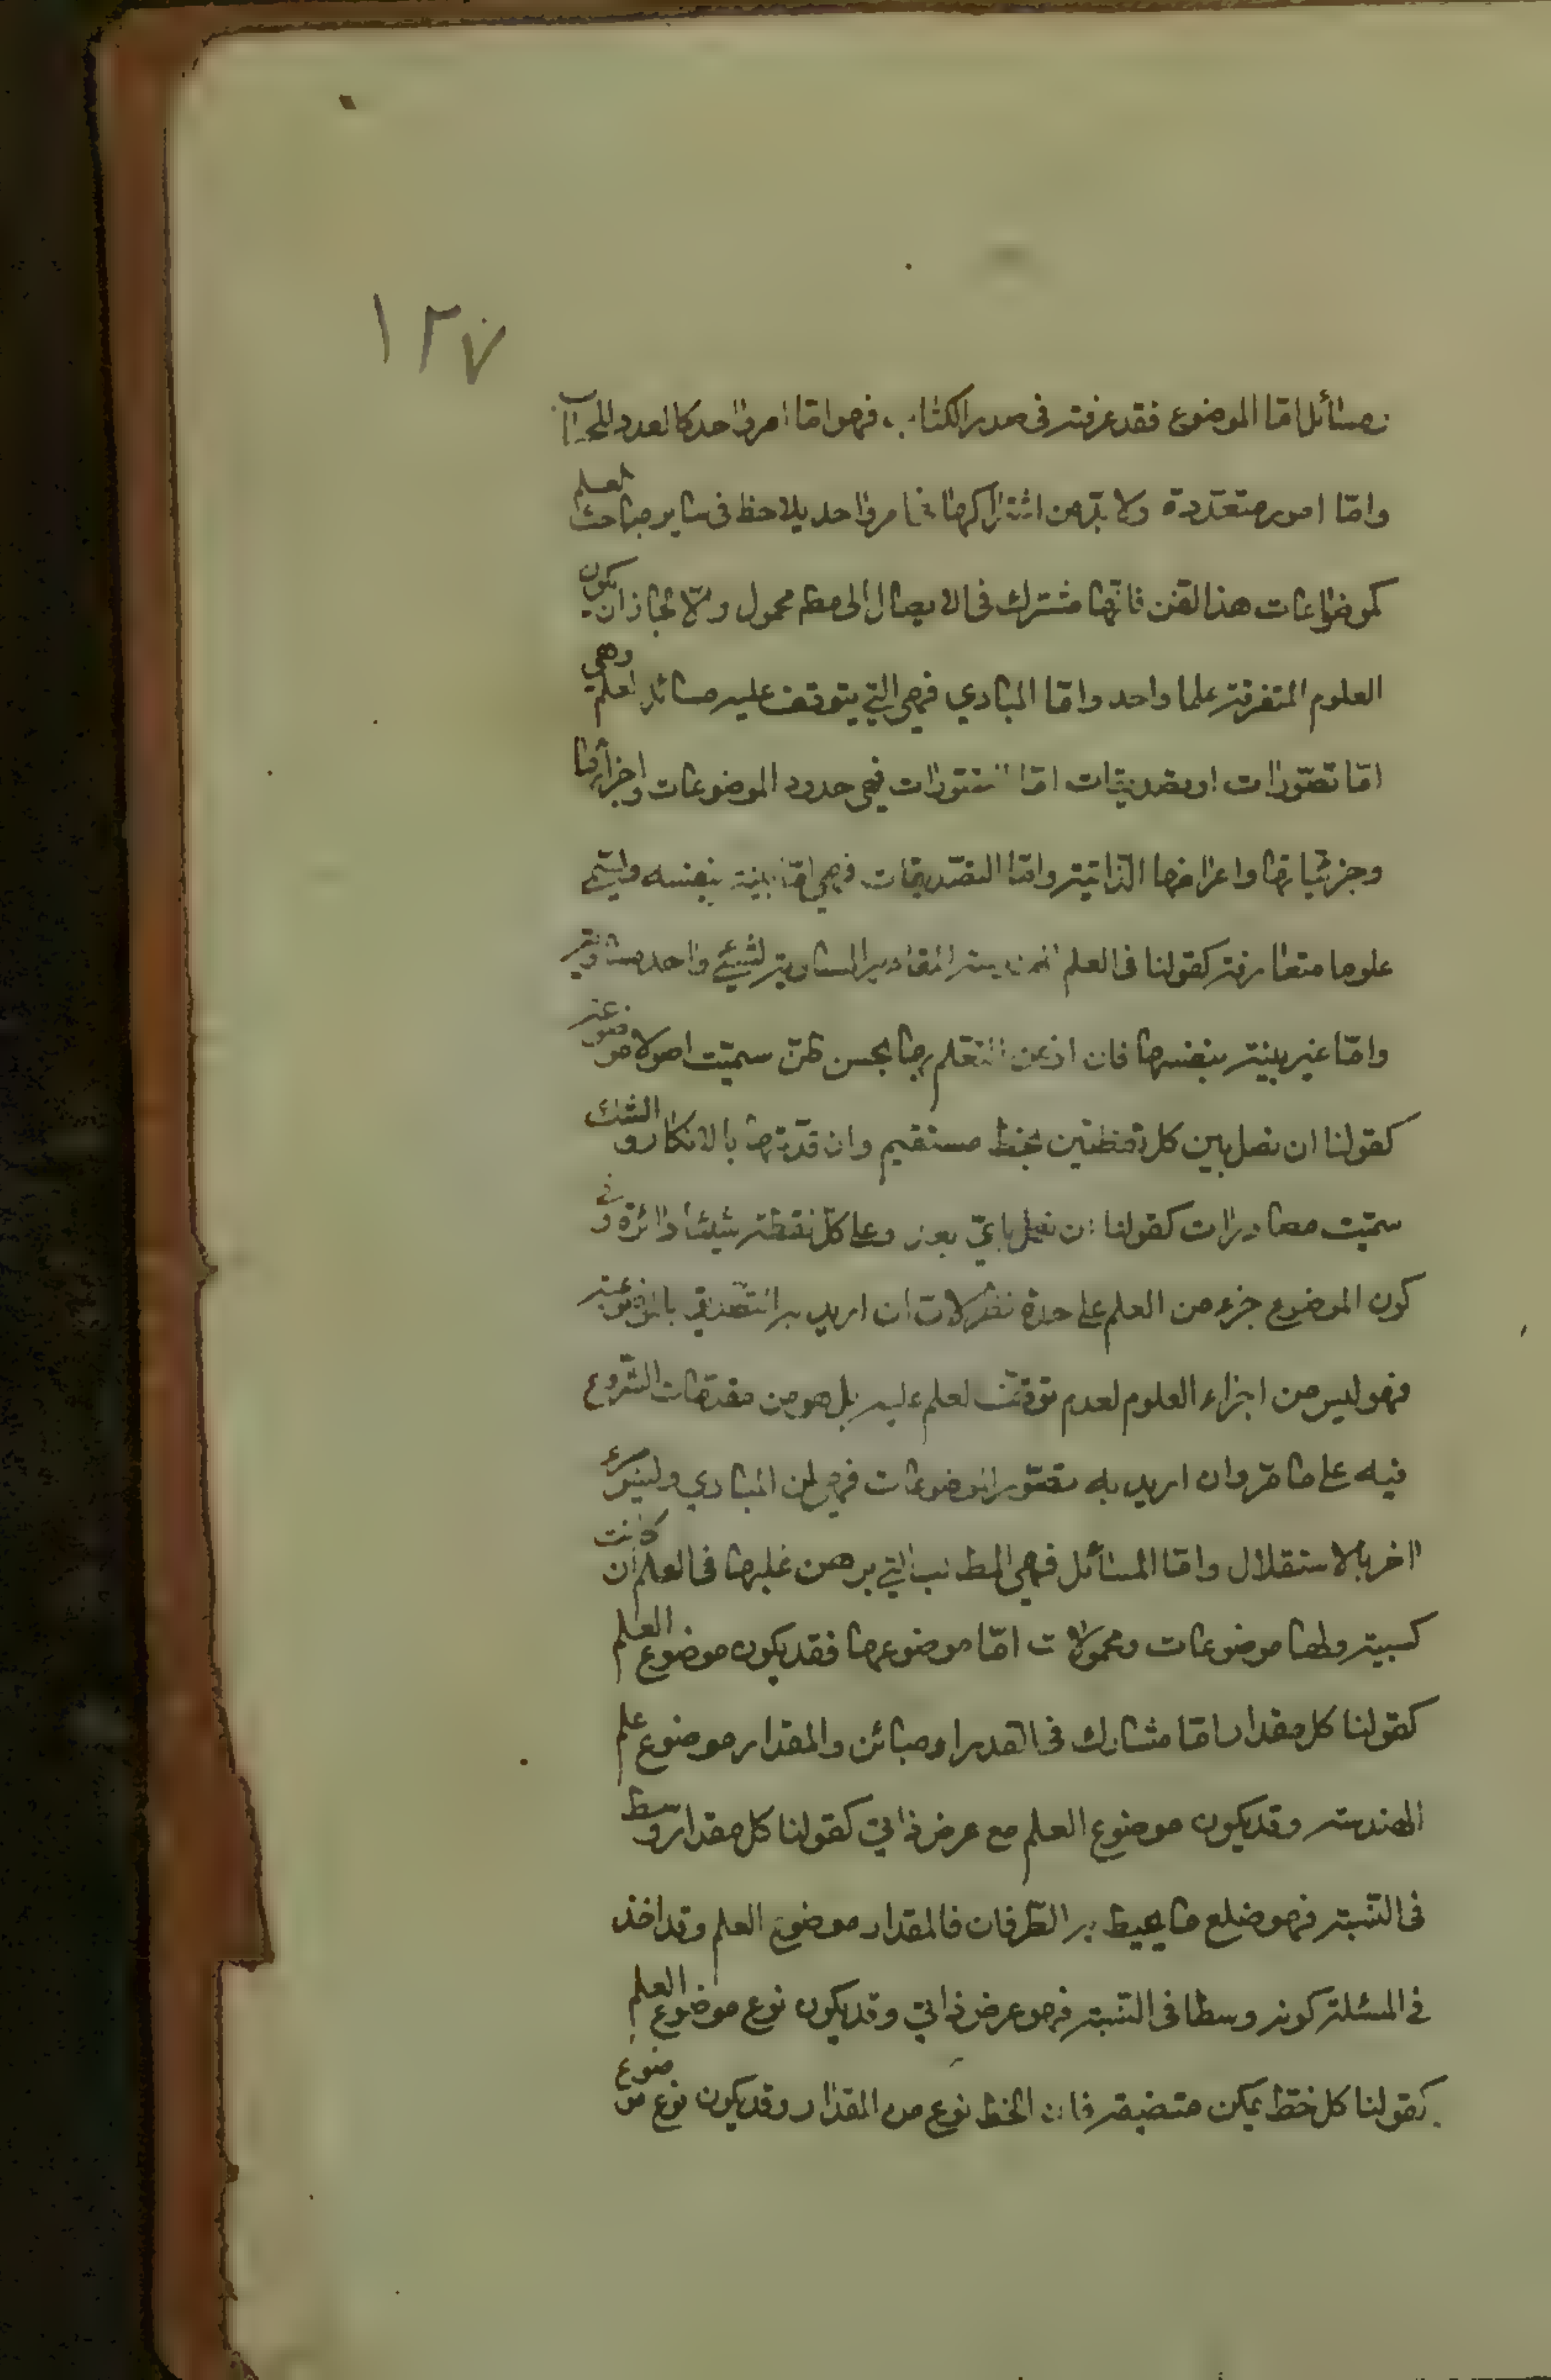 ١٢٧
ومسائل اما الموضوع فقد عرفته فى صدر الكتاب فهو اما امر واحد كالعدد للحساب
واما امور متعددة ولا بد من اشتراكها فى امر واحد يلاحظ فى سائر مباحث العلم
كموضوعات هذا الفن فانها مشترك فى الايصال الى مط مجهول والا لجاز ان يكون
العلوم المتفرقة علما واحد واما المبادي فهي التي يتوقف عليه مسائل العلم وهي
اما تصورات او تصديقات اما التصورات فهي حدود الموضوعات واجزائها
وجزئياتها واعراضها الذاتية واما التصديقات فهي اما بينة بنفسه وليسمى
علوما متعارفة كقولنا فى العلم الهندسة المقادير المساوية لشيئ واحد متساوية
واما غير بينة بنفسها فان اذعن المتعلم بها بحسن ظن سميت اصولا موضوعة
كقولنا ان نصل بين كل نقطتين بخط مستقيم وان بالانكار والشك
سميت مصادرات كقولنا ان نعمل باي بعد وعلى كل نقطة شيئا دائرة وفى
كون الموضوع جزء من العلم على حدة نظر لان ان اريد به التصديق بالموضوعية
فهو ليس من اجزاء العلوم لعدم توقف العلم عليه بل هو من مقدمات الشروع
فيه على ما مر وان اريد به تصور الموضوعات فهي من المبادي وليس جزء
اخر بالاستقلال واما المسائل فهي المطالب التي برهن عليها فى العلم ان كانت
كسبية ولها موضوعات ومحمولات اما موضوعها فقد يكون موضوع العلم
كقولنا كل مقدار اما مشارك فى القدر او مبائن والمقدار موضوع علم
الهندسة وقد يكون موضوع العلم مع عرض ذاتي كقولنا كل مقدار وسط
فى النسبة فهو ضلع ما يحيط به الطرفان فالمقدار موضوع العلم وقد اخذ
فى المسئلة كونه وسطا فى النسبة فهو عرض ذاتي وقد يكون نوع موضوع العلم
كقولنا كل خط يمكن فان الخط نوع من المقدار وقد يكون نوع موضوع